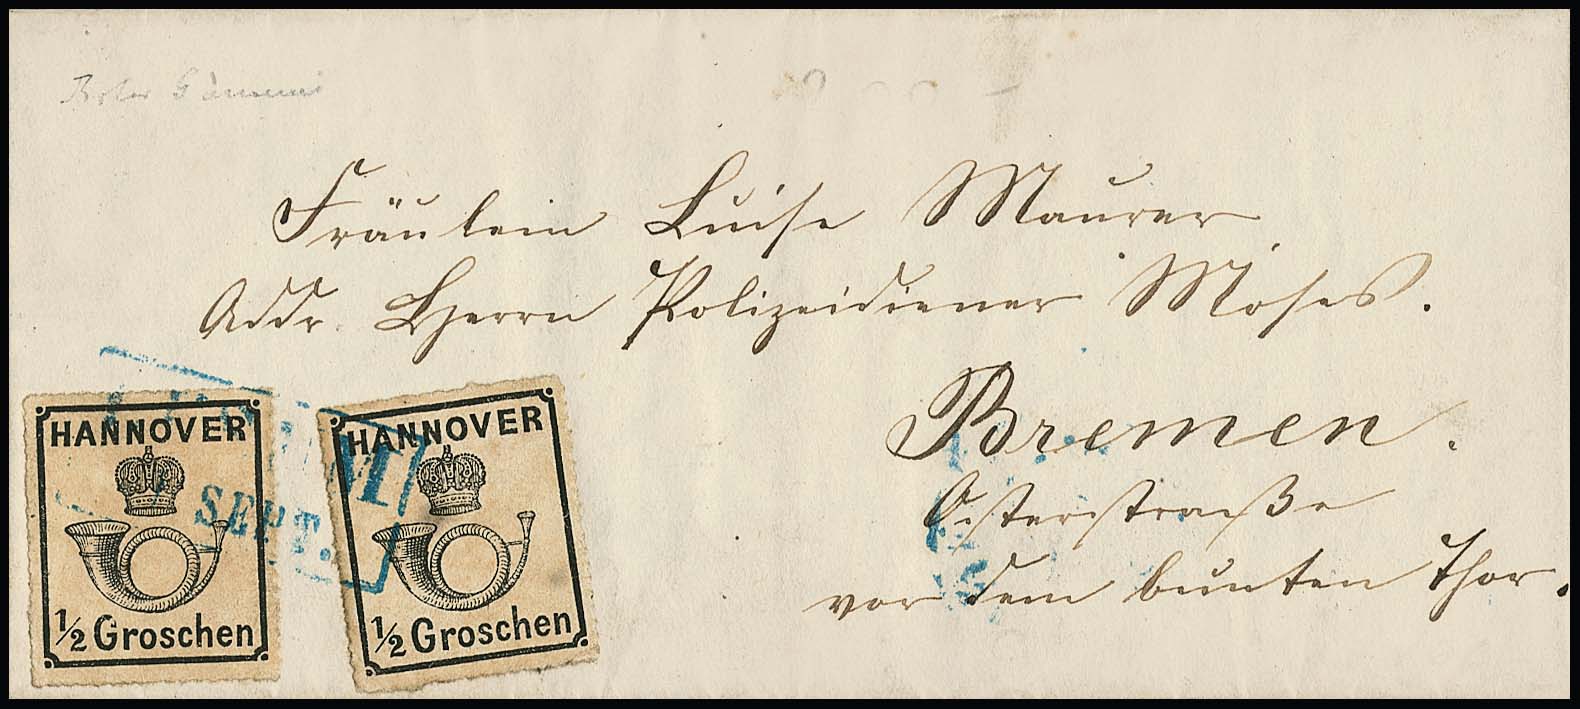 Fräulein Luise Maurer
Addr. Herrn Polizeidiener Moses.
Bremen.
Osterstraße
vor dem bunten Thor.
HANNOVER
1/2 Groschen
HANNOVER
1/2 Groschen
SEPT.